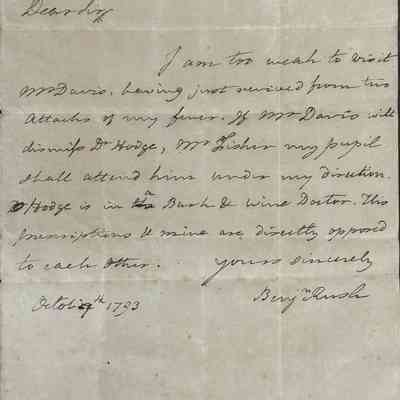 Dear Sir
I am too weak to visit
Mr Davis, having just revived from two
attacks of my fever. If Mr Davis will
dismiss Dr Hodge, Mr Fisher my pupil
shall attend him under my direction.
Dr Hodge is in a Bark & wine Doctor. His
prescriptions & mine are directly opposed
to each other. Yours sincerely
Octobr 9th 1793 Benjn Rush